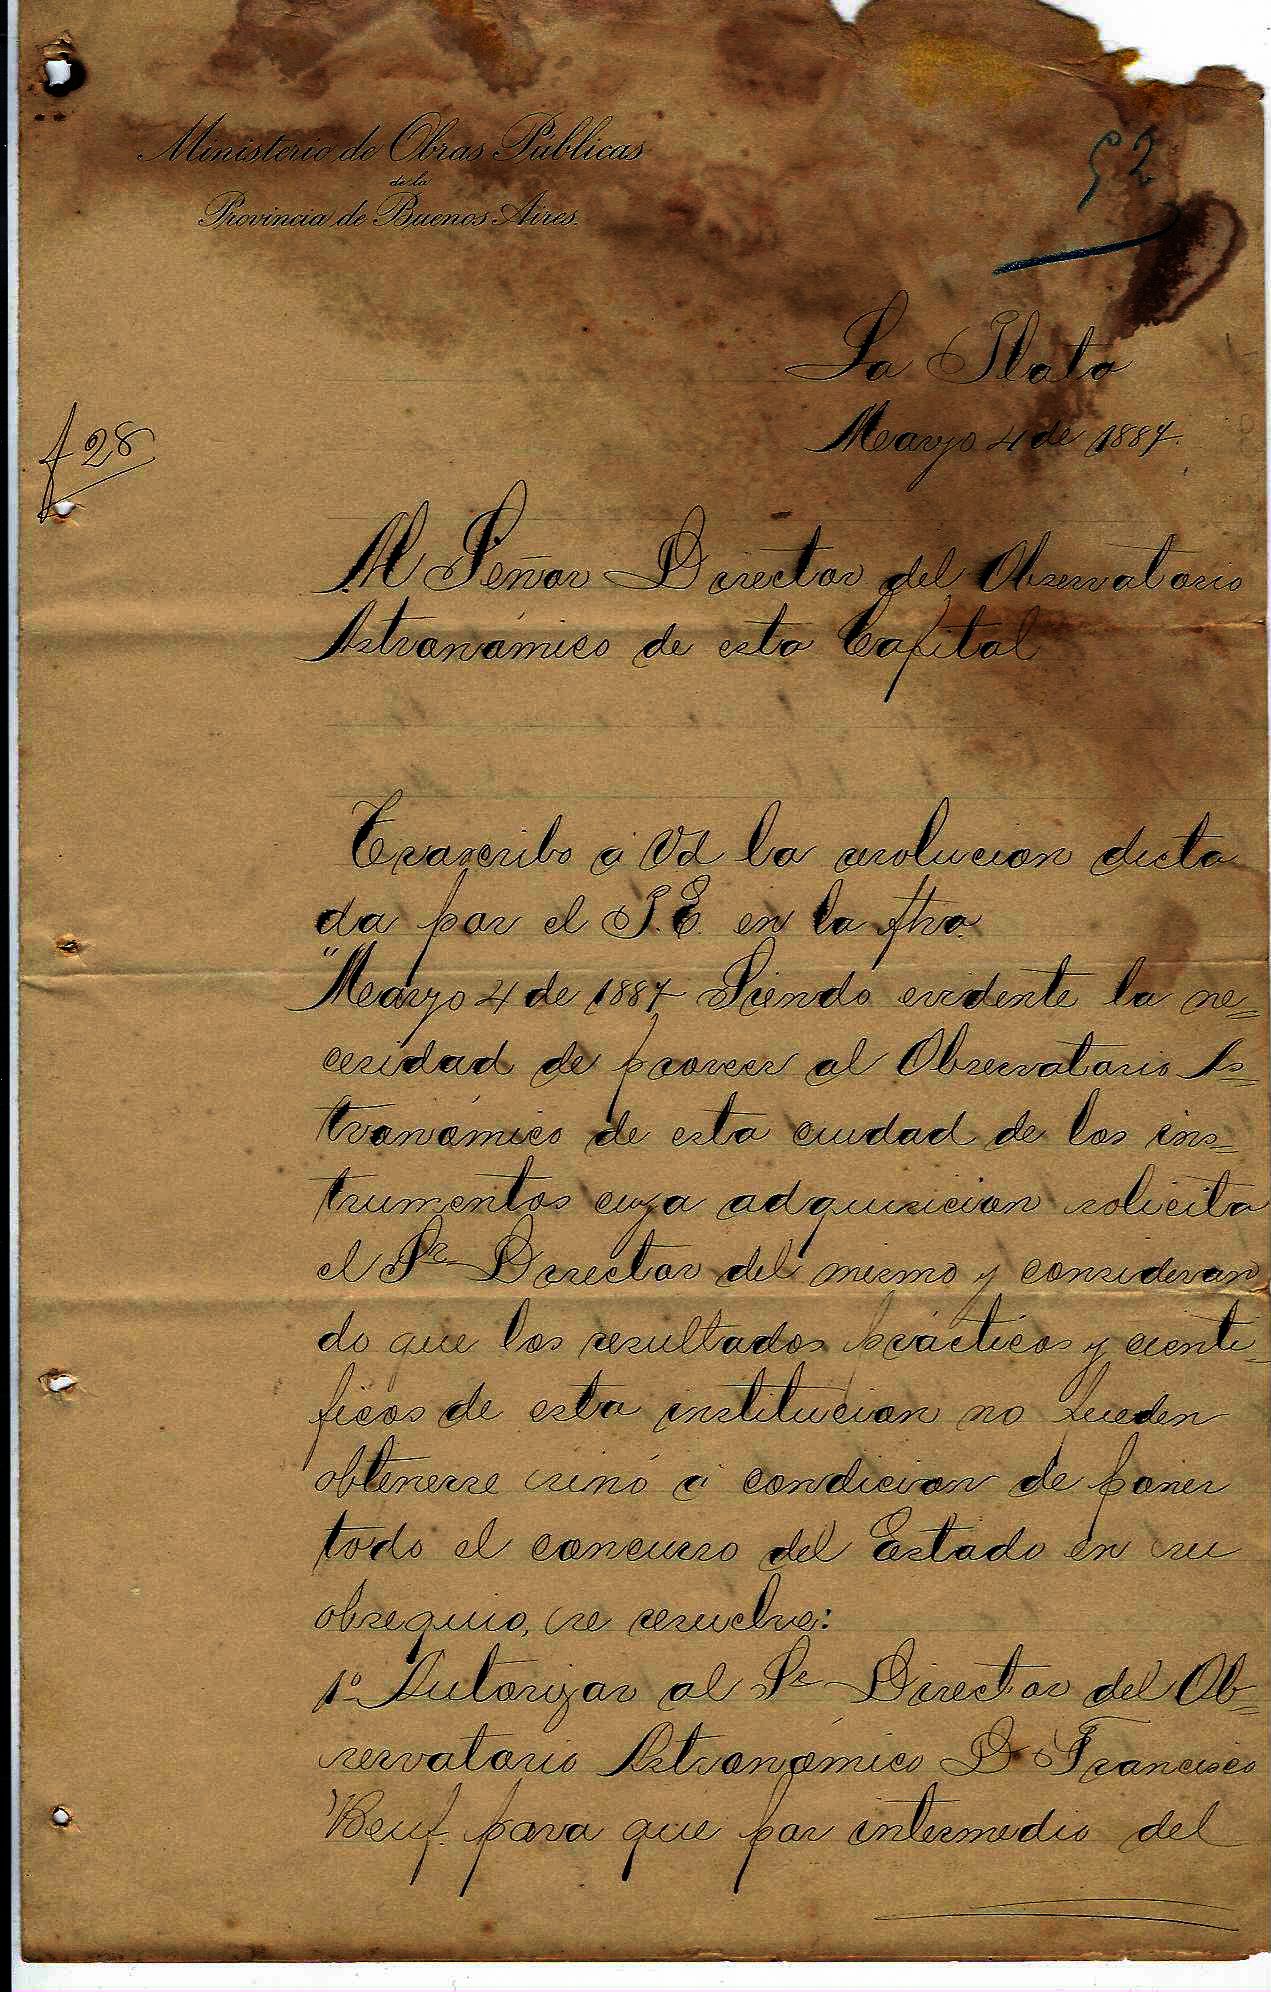 Ministerio de Obras Públicas
de la
Provincia de Buenos Aires.
52
La Plata
Marzo 4 de 1887.
f 28
Al Señor Director del Observatorio
Astronómico de esta Capital
Trascribo á Vd la resolucion dicta
da por el P.E. en la fha.
"Marzo 4 de 1887 Siendo evidente la ne=
cesidad de proveer al Observatorio As=
tronómico de esta ciudad de los ins=
trumentos cuya adquisicion solicita
el Sr Director del mismo y consideran
do que los resultados prácticos y cienti_
ficos de esta institucion no pueden
obtenerse sinó á condicion de poner
todo el concurso del Estado en su
obsequio, se resuelve:
1º Autorizar al Sr Director del Ob=
servatorio Astronómico D. Francisco
Beuf para que por intermedio del